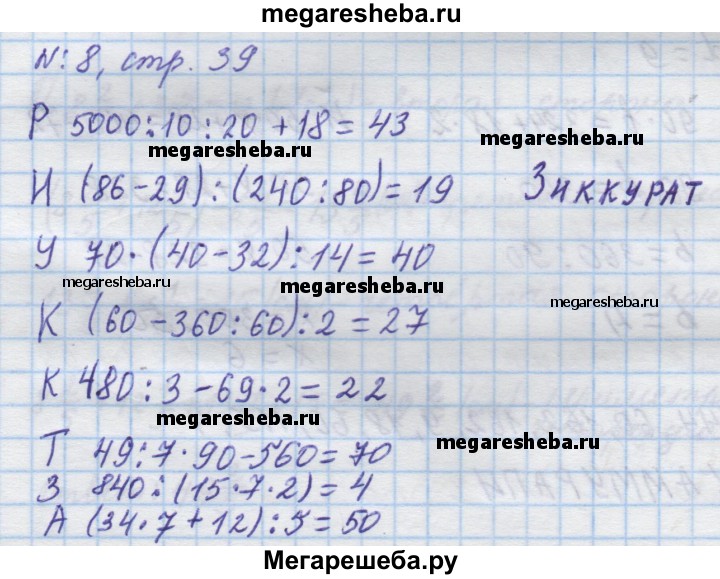 megaresheba.ru
№: 8, стр. 39
Р 5000:10:20+18=43
megaresheba.ru
И (86-29):(240:80)=19 Зиккурат
У 70·(40-32):14=40
megaresheba.ru megaresheba.ru
megaresheba.ru
К (60-360:60):2=27
К 480:3-69·2=22
megaresheba.ru
megaresheba.ru
Т 49:7·90-560=70
З 840:(15·7·2)=4
А (34·7+12):5=50
Мегарешеба.ру